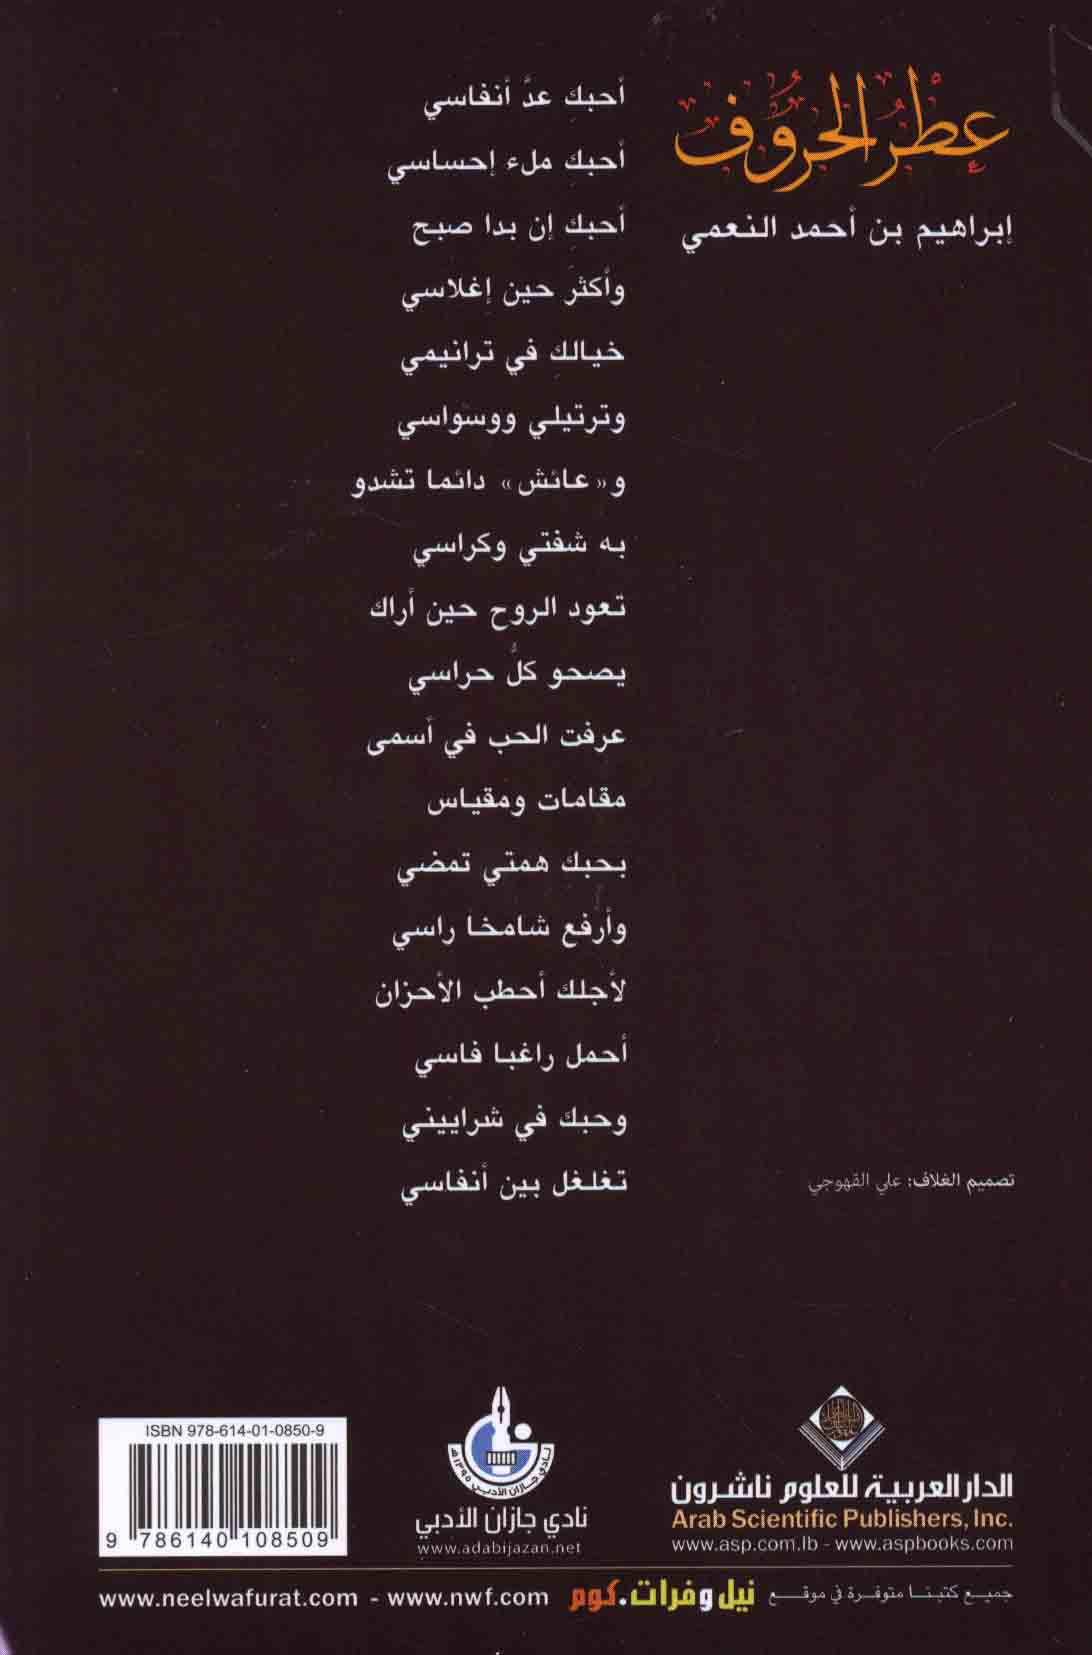 عِطْرُ الحُرُوف
إبراهيم بن أحمد النعمي
أحبكِ عدَّ أنفاسي
أحبكِ ملء إحساسي
أحبكِ إن بدا صبح
وأكثرَ حين إغلاسي
خيالكِ في ترانيمي
وترتيلي ووسواسي
و«عائش» دائما تشدو
به شفتي وكراسي
تعود الروح حين أراك
يصحو كلُّ حراسي
عرفت الحب في أسمى
مقامات ومقياس
بحبك همتي تمضي
وأرفع شامخا راسي
لأجلك أحطب الأحزان
أحمل راغبا فاسي
وحبك في شراييني
تغلغل بين أنفاسي
تصميم الغلاف: علي القهوجي
الدار العربية للعلوم ناشرون
Arab Scientific Publishers, Inc.
www.asp.com.lb - www.aspbooks.com
نادي جازان الأدبي ١٣٩٥هـ
نادي جازان الأدبي
www.adabijazan.net
ISBN 978-614-01-0850-9
9 786140 108509
جميع كتبنا متوفرة في موقع نيل وفرات.كوم
www.neelwafurat.com - www.nwf.com